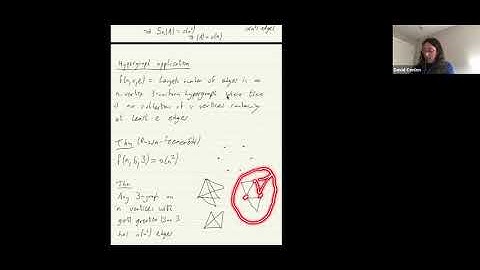 ⇒ S₂(A) = o(n²)
⇒ |A| = o(n)
o(n²) edges
Hypergraph application
f(n,v,e) = largest number of edges in an
n-vertex 3-uniform hypergraph where there
is no collection of v vertices containing
at least e edges.
Thm (Ruzsa-Szemerédi)
f(n,6,3) = o(n²)
Thm
Any 3-graph on
n vertices with
girth greater than 3
has o(n²) edges
David Conlon